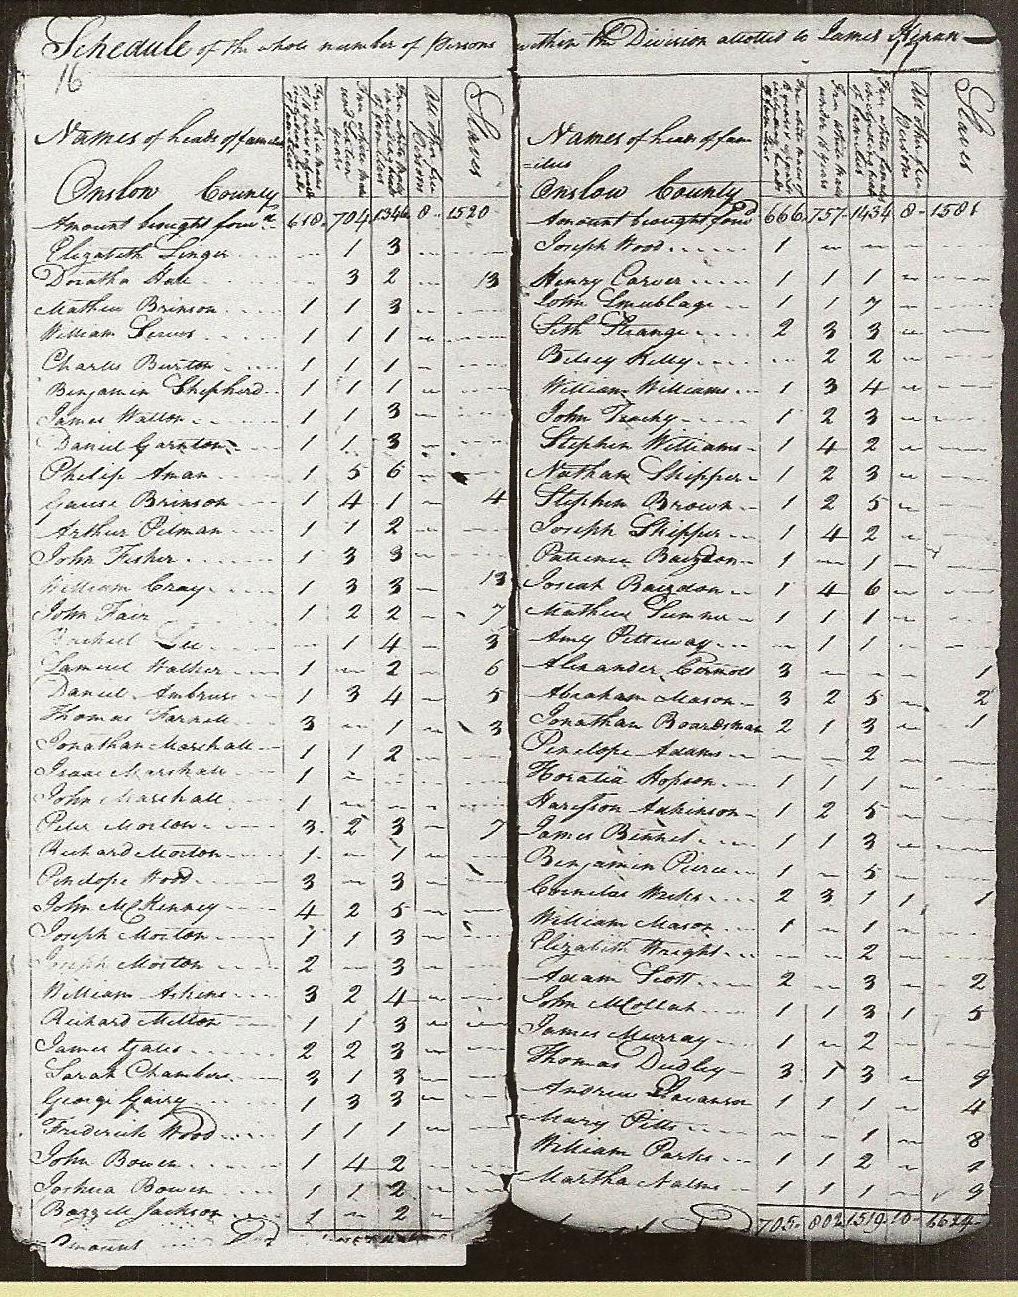 Schedule of the whole number of Persons within the Division alloted to James Kenan
16
17
Names of heads of families
All other free Persons
Slaves
Onslow County
Amount brought forwd 618 704 1346 8 1520
Elizabeth 1 3
Doratha 3 2 13
Mathew Brinson 1 1 3
William Lewis 1 1 1
Charles Burton 1 1 1
Benjamin Shepherd 1 1 1
James Walton 1 1 3
Daniel 1 1 3
Philip Aman 1 5 6
Brinson 1 4 1 4
Arthur Pitman 1 1 2
John Fisher 1 3 3
William Gray 1 3 3 13
John Fair 1 2 2 7
Rachael Lee 1 4 3
Samuel Walker 1 2 6
Daniel Ambrose 1 3 4 5
Thomas Farnell 3 1 3
Jonathan Marshall 1 1 2
Isaac Marshall 1
John Marshall 1
Peter Morton 3 2 3 7
Richard Morton 1 1
Penelope Wood 3 3
John McKenney 4 2 5
Joseph Morton 1 1 3
Joseph Morton 2 3
William Askins 3 2 4
Richard Milton 1 1 3
James Yates 2 2 3
Sarah Chambers 3 1 3
George 1 3 3
Frederick Wood 1 1 1
John Bowen 1 4 2
Joshua Bowen 1 1 2
Bazzell Jackson 1 2
Amount
Names of heads of fam
=ilies
Free white males under 16 years
All other free Persons
Slaves
Onslow County
Amount brought forwd 666 757 1434 8 1581
Joseph Wood 1
Henry Carver 1 1 1
John 1 1 7
Seth Strange 2 3 3
Betsey Kelly 2 2
William Williams 1 3 4
John 1 2 3
Stephen Williams 1 4 2
Nathan Skipper 1 2 3
Stephen Brown 1 2 5
Joseph Skipper 1 4 2
Patience 1 1
Josiah 1 4 6
Mathew Sumner 1 1 1
Amy Pitteway 1 1
Alexander 3 1
Abraham Mason 3 2 5 2
Jonathan Boardsman 2 1 3 1
Penelope Adams 2
Horatia Hopson 1 1 1
Adkinson 1 2 5
James Bennet 1 1 3
Benjamin Pierce 1 5
Cornelas Weeks 2 3 1 1 1
William Mason 1 1
Elizabeth Wright 2
Adam Scott 2 3 2
John 1 1 3 1 5
James Murray 1 2
Thomas Dudley 3 1 3 9
Andrew 1 1 1 4
Mary Pitts 1 8
William Parks 1 1 2 2
Martha 1 1 1 9
705 802 1519 10 1624